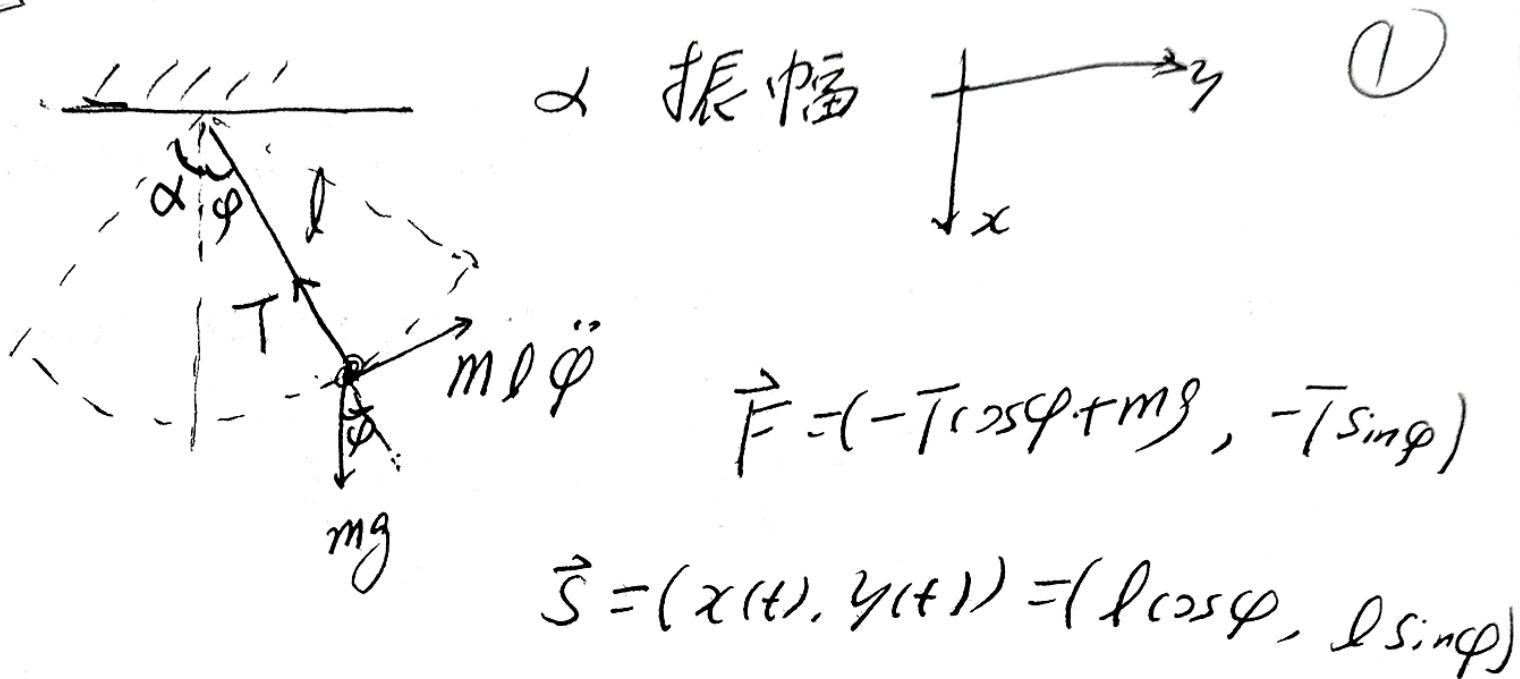 α 振幅 y ①
x
α φ l
T
m l φ̈
φ
mg
F⃗ = (-T cosφ + mg, -T sinφ)
S⃗ = (x(t), y(t)) = (l cosφ, l sinφ)